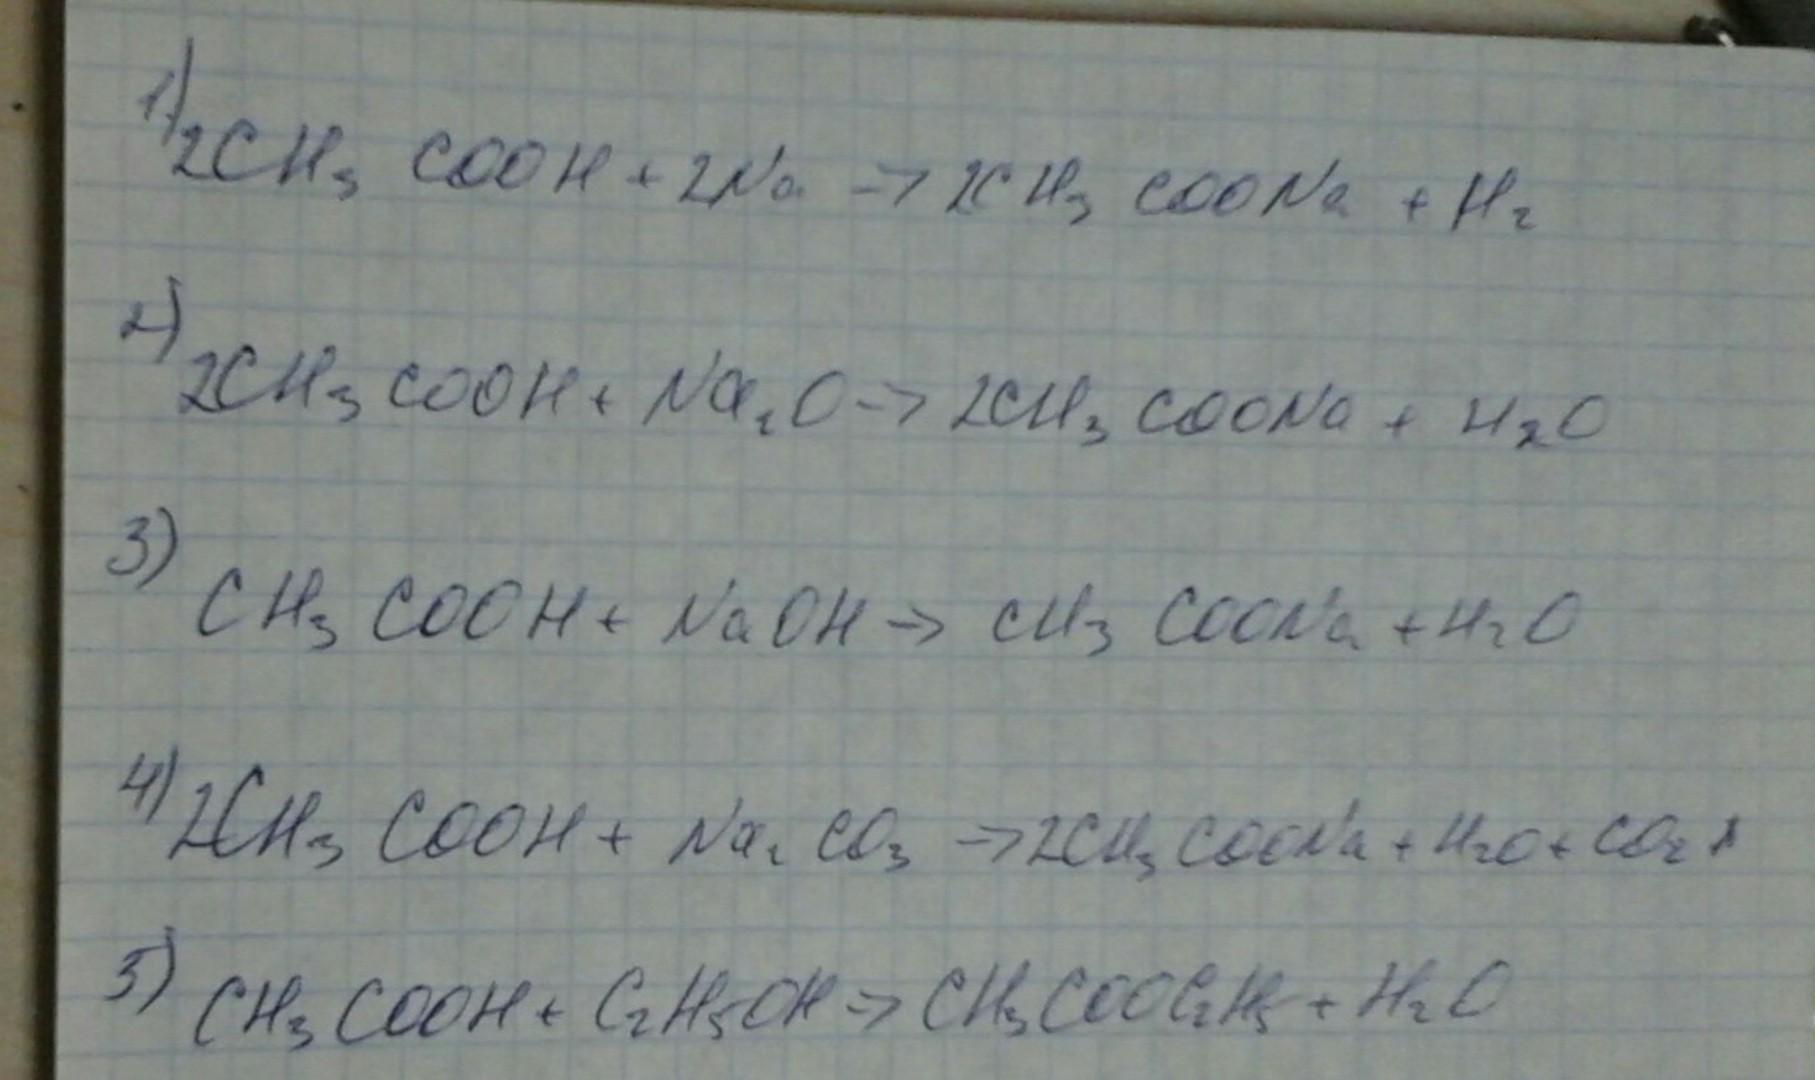 1)
2CH₃COOH + 2Na → 2CH₃COONa + H₂
2)
2CH₃COOH + Na₂O → 2CH₃COONa + H₂O
3)
CH₃COOH + NaOH → CH₃COONa + H₂O
4)
2CH₃COOH + Na₂CO₃ → 2CH₃COONa + H₂O + CO₂↑
5)
CH₃COOH + C₂H₅OH → CH₃COOC₂H₅ + H₂O